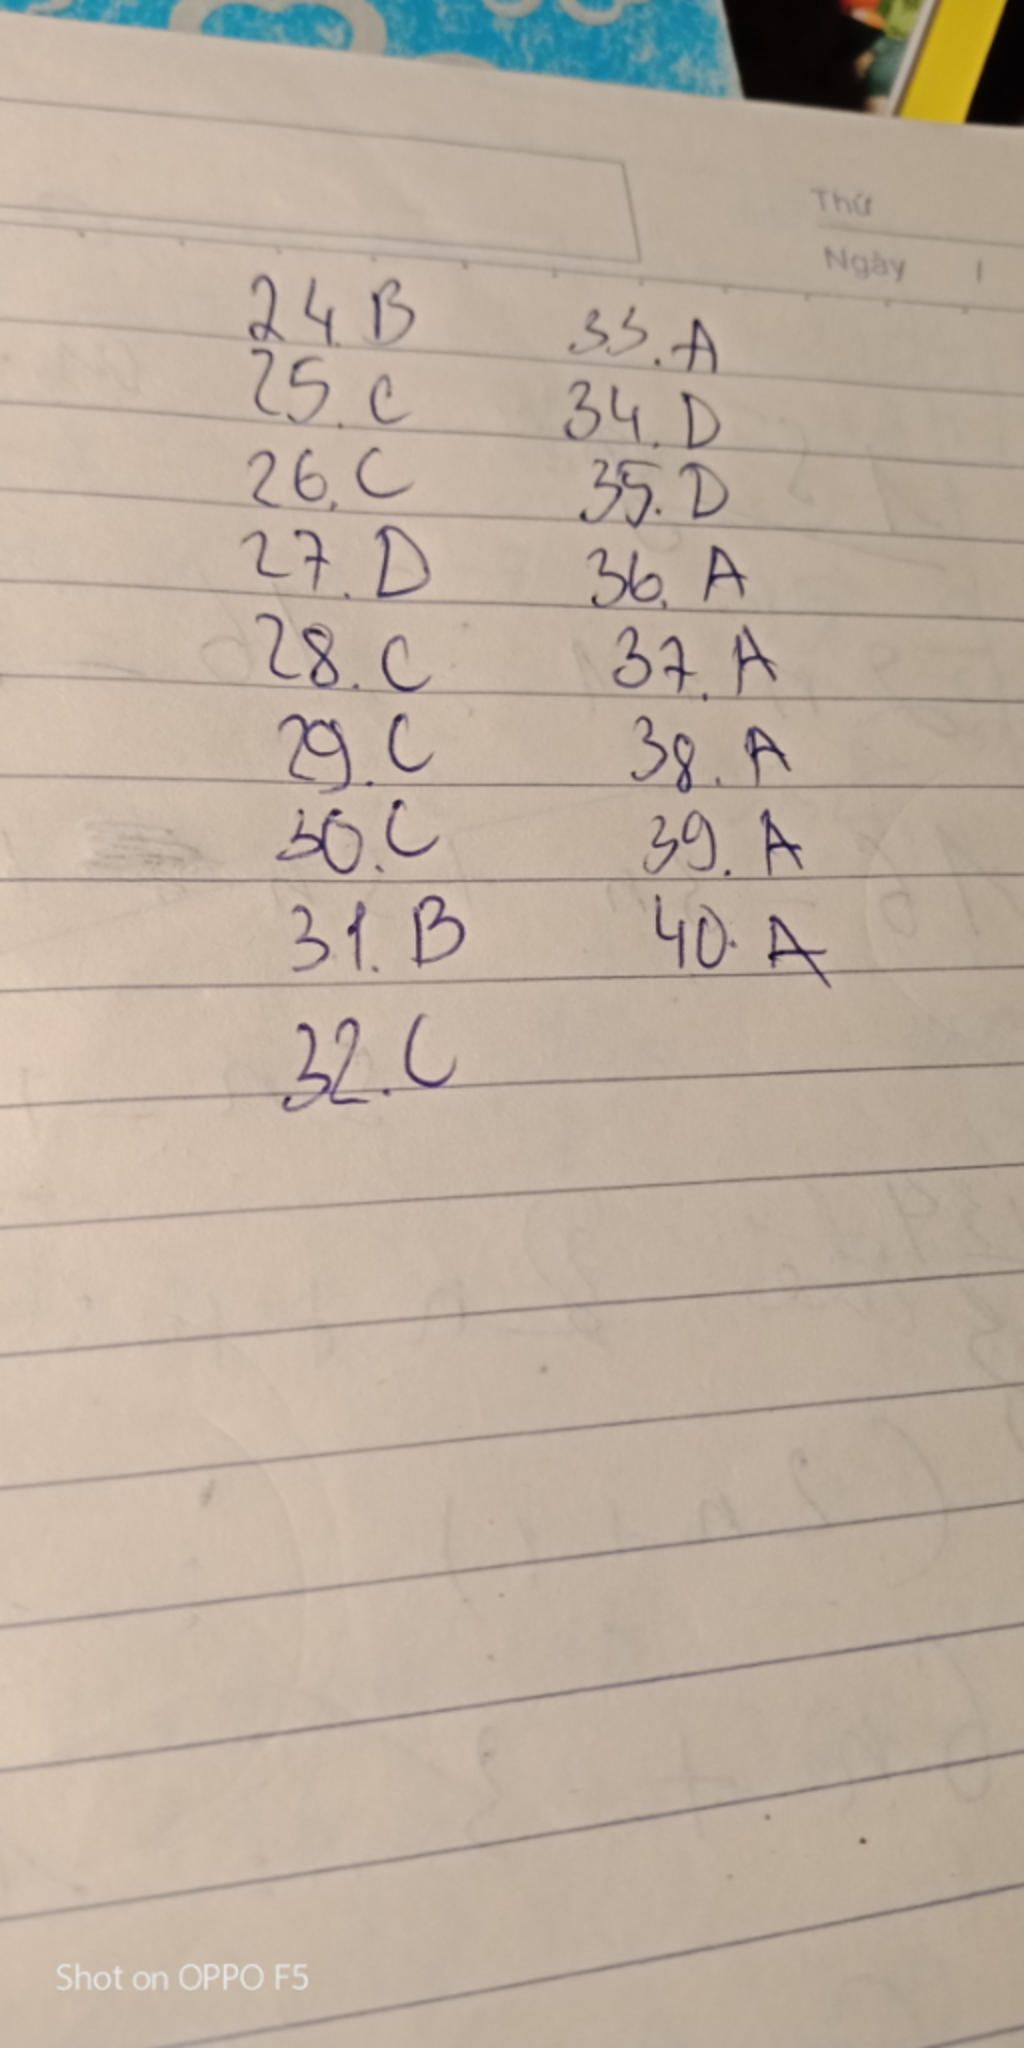 Thứ
Ngày /
24. B
25. C
26. C
27. D
28. C
29. C
30. C
31. B
32. C
33. A
34. D
35. D
36. A
37. A
38. A
39. A
40. A
Shot on OPPO F5